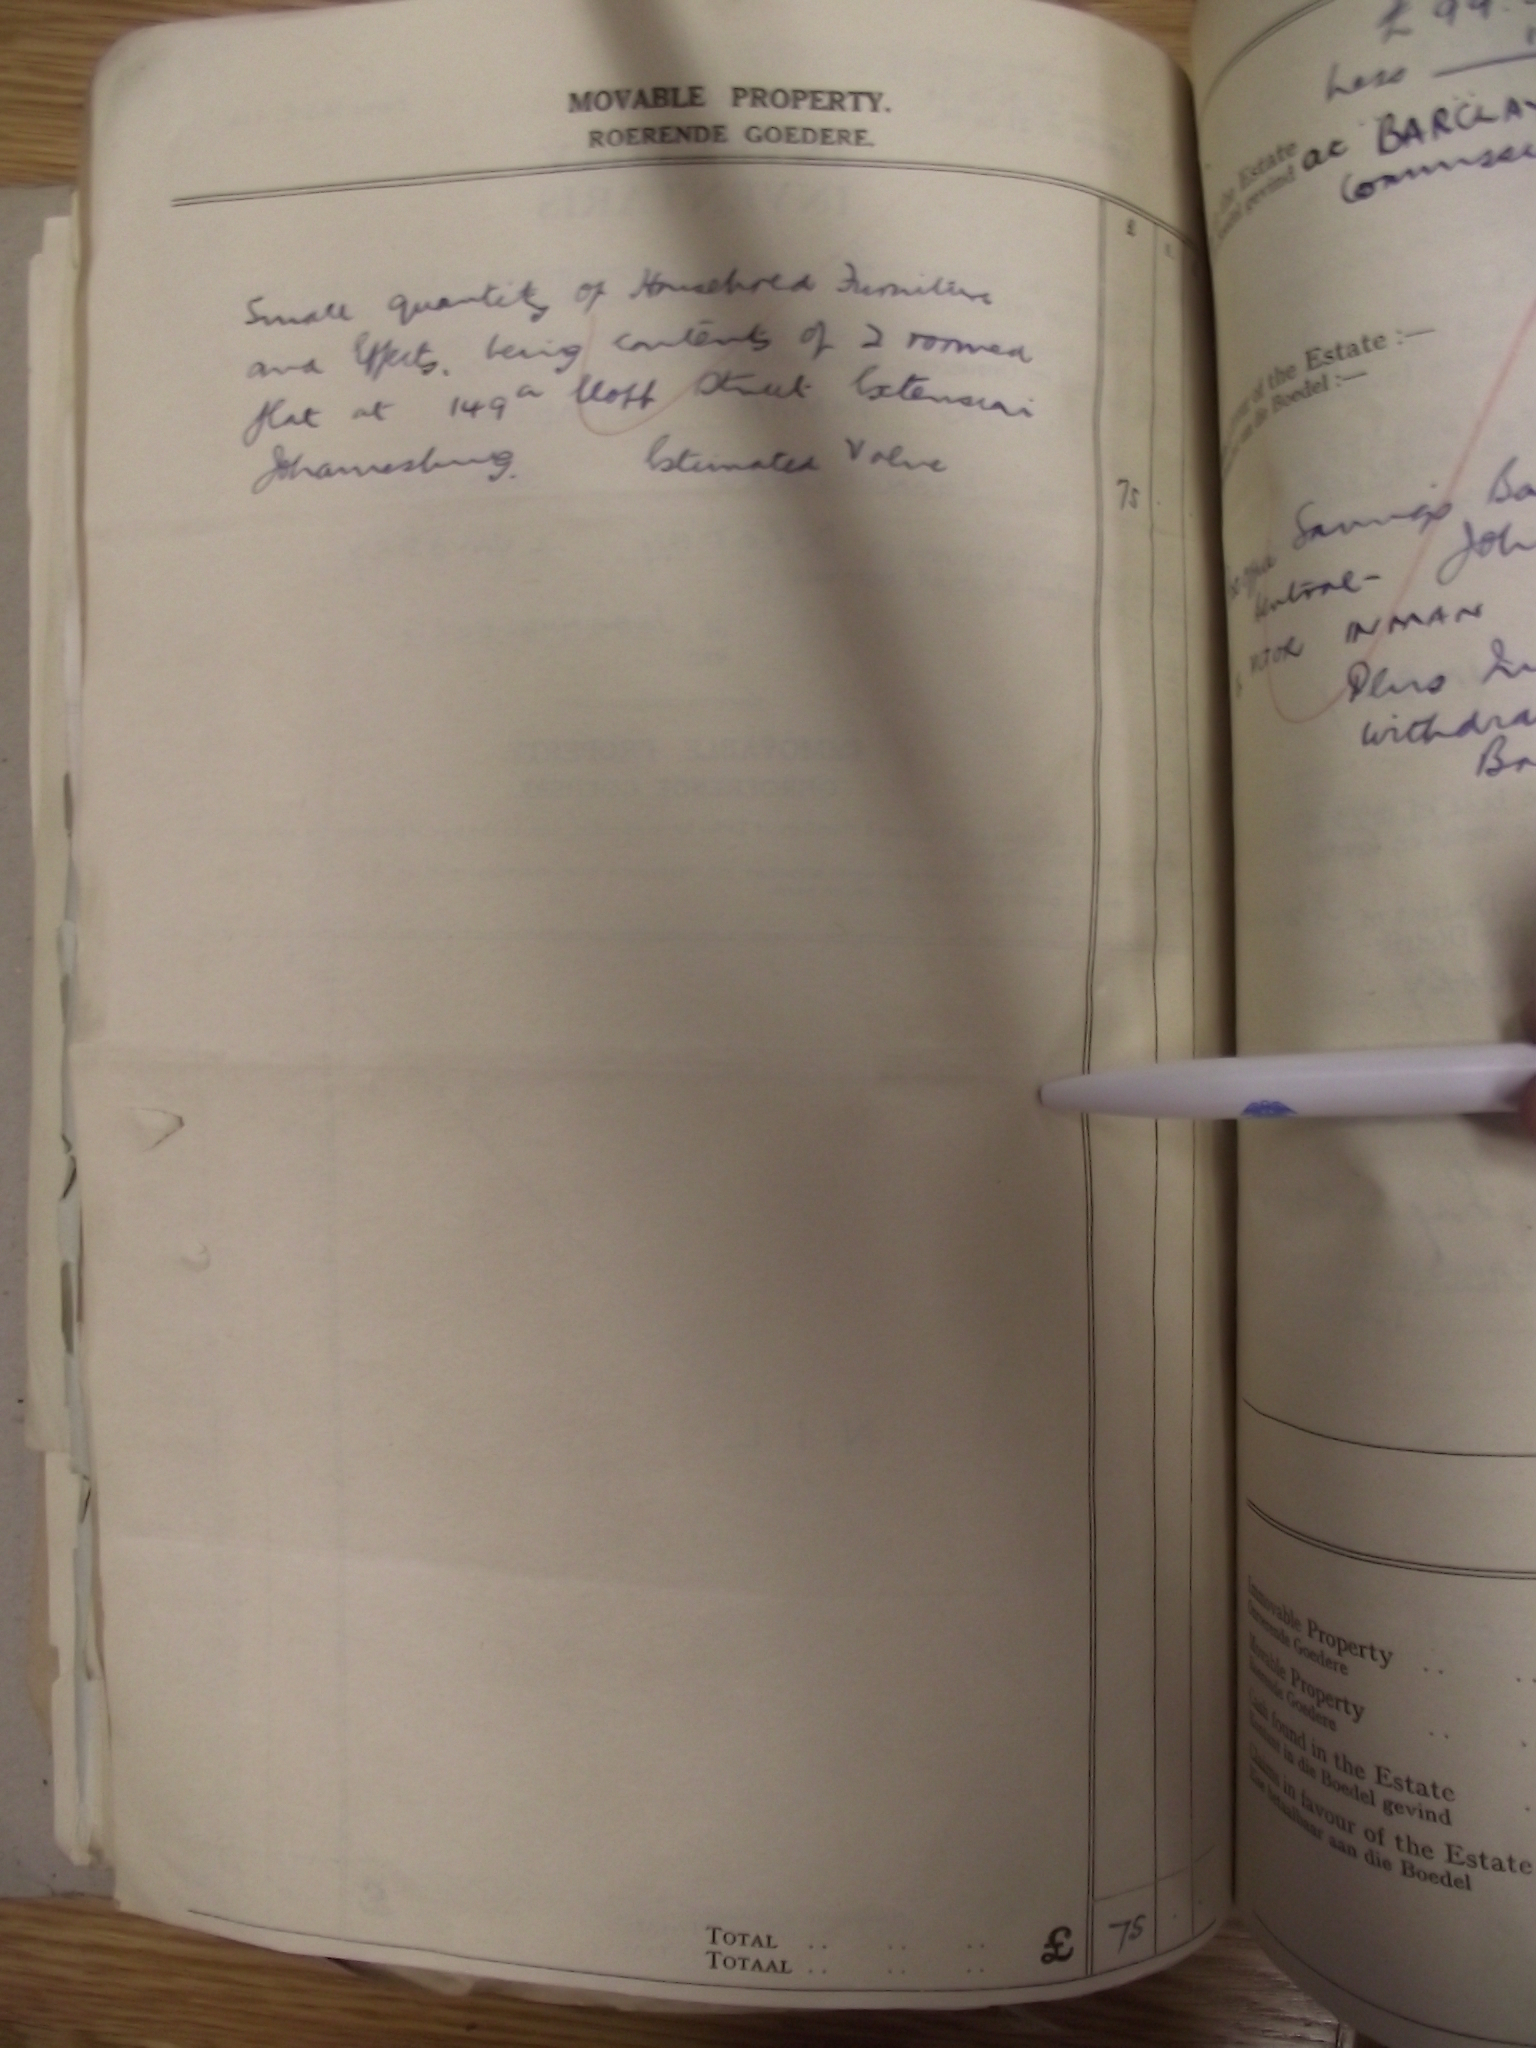 MOVABLE PROPERTY.
ROERENDE GOEDERE.
£
Small quantity of Household Furniture
and Effects, being contents of 2 roomed
flat at 149a Street Extension
Johannesburg. Estimated Value
75
TOTAL .. .. .. £ 75
TOTAAL .. .. ..
£ 99.
Less
the Estate
gevind
at BARCLAY
Commissi
of the Estate :—
die Boedel :—
Savings Ba
Central- Joh
INMAN
Plus In
withdra
Ba
Immovable Property ..
Onroerende Goedere
Movable Property ..
Roerende Goedere
Cash found in the Estate
Kontant in die Boedel gevind
Claims in favour of the Estate
aan die Boedel